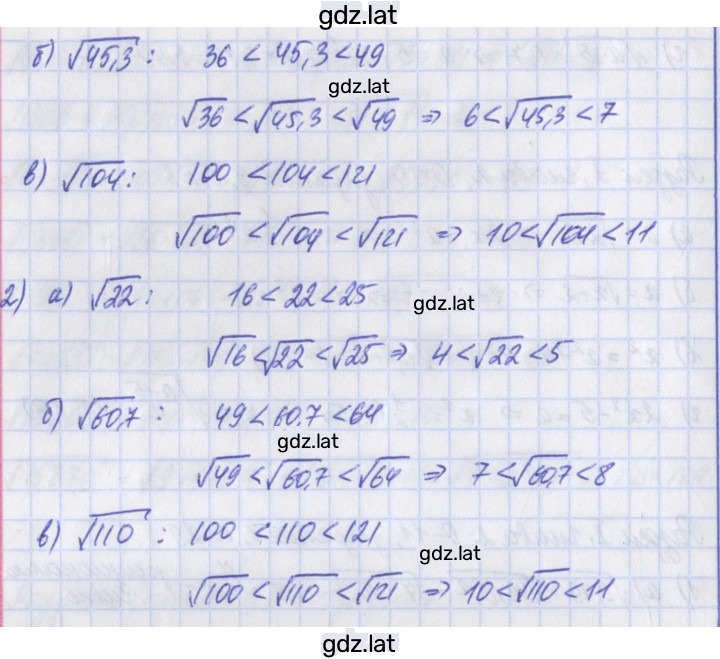 gdz.lat
б) √45,3 : 36 < 45,3 < 49
gdz.lat
√36 < √45,3 < √49 ⇒ 6 < √45,3 < 7
в) √104: 100 < 104 < 121
√100 < √104 < √121 ⇒ 10 < √104 < 11
2) а) √22 : 16 < 22 < 25
gdz.lat
√16 < √22 < √25 ⇒ 4 < √22 < 5
б) √60,7 : 49 < 60.7 < 64
gdz.lat
√49 < √60,7 < √64 ⇒ 7 < √60,7 < 8
в) √110 : 100 < 110 < 121
gdz.lat
√100 < √110 < √121 ⇒ 10 < √110 < 11
gdz.lat